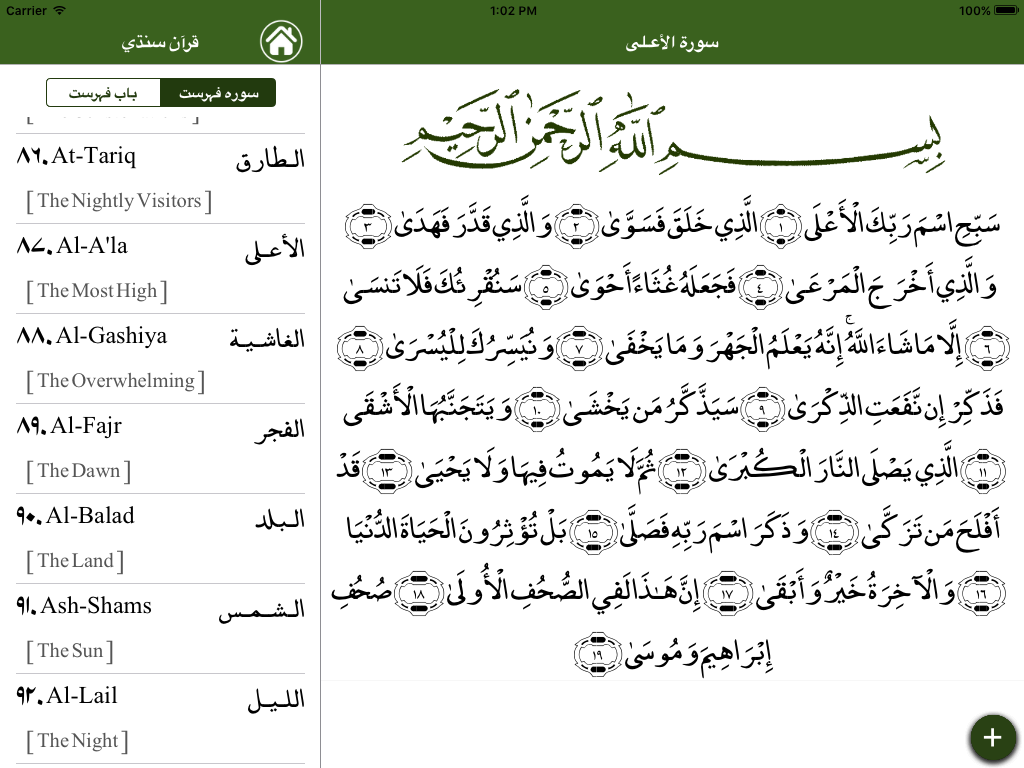 Carrier 1:02 PM 100%
قرآن سنڌي
سورة الأعلى
باب فهرست سوره فهرست
٨٦. At-Tariq الطارق
[ The Nightly Visitors ]
٨٧. Al-A'la الأعلى
[ The Most High ]
٨٨. Al-Gashiya الغاشية
[ The Overwhelming ]
٨٩. Al-Fajr الفجر
[ The Dawn ]
٩٠. Al-Balad البلد
[ The Land ]
٩١. Ash-Shams الشمس
[ The Sun ]
٩٢. Al-Lail الليل
[ The Night ]
بِسْمِ اللَّهِ الرَّحْمَٰنِ الرَّحِيمِ
سَبِّحِ اسْمَ رَبِّكَ الْأَعْلَى ١ الَّذِي خَلَقَ فَسَوَّىٰ ٢ وَالَّذِي قَدَّرَ فَهَدَىٰ ٣
وَالَّذِي أَخْرَجَ الْمَرْعَىٰ ٤ فَجَعَلَهُ غُثَاءً أَحْوَىٰ ٥ سَنُقْرِئُكَ فَلَا تَنسَىٰ
٦ إِلَّا مَا شَاءَ اللَّهُ ۚ إِنَّهُ يَعْلَمُ الْجَهْرَ وَمَا يَخْفَىٰ ٧ وَنُيَسِّرُكَ لِلْيُسْرَىٰ ٨
فَذَكِّرْ إِن نَّفَعَتِ الذِّكْرَىٰ ٩ سَيَذَّكَّرُ مَن يَخْشَىٰ ١٠ وَيَتَجَنَّبُهَا الْأَشْقَى
١١ الَّذِي يَصْلَى النَّارَ الْكُبْرَىٰ ١٢ ثُمَّ لَا يَمُوتُ فِيهَا وَلَا يَحْيَىٰ ١٣ قَدْ
أَفْلَحَ مَن تَزَكَّىٰ ١٤ وَذَكَرَ اسْمَ رَبِّهِ فَصَلَّىٰ ١٥ بَلْ تُؤْثِرُونَ الْحَيَاةَ الدُّنْيَا
١٦ وَالْآخِرَةُ خَيْرٌ وَأَبْقَىٰ ١٧ إِنَّ هَٰذَا لَفِي الصُّحُفِ الْأُولَىٰ ١٨ صُحُفِ
إِبْرَاهِيمَ وَمُوسَىٰ ١٩